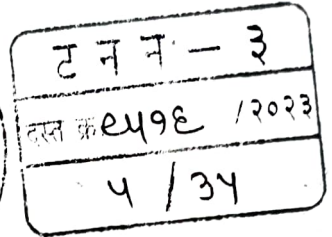 ट न न - ३
दस्त क्र ८५१६ /२०२३
५ / ३५